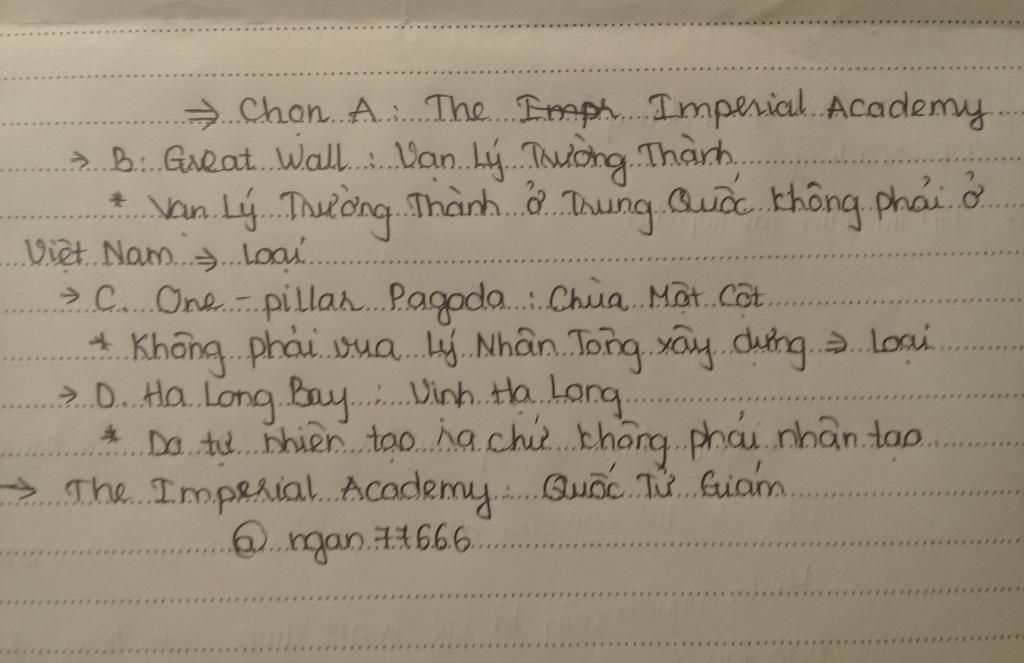 => Chọn A: The Imperial Academy
-> B: Great Wall: Vạn Lý Trường Thành
* Vạn Lý Trường Thành ở Trung Quốc không phải ở
Việt Nam => loại
-> C. One-pillar Pagoda: Chùa Một Cột
* Không phải vua Lý Nhân Tông xây dựng => loại
-> D. Ha Long Bay: Vịnh Hạ Long
* Do tự nhiên tạo ra chứ không phải nhân tạo
-> The Imperial Academy: Quốc Tử Giám
@ ngan77666